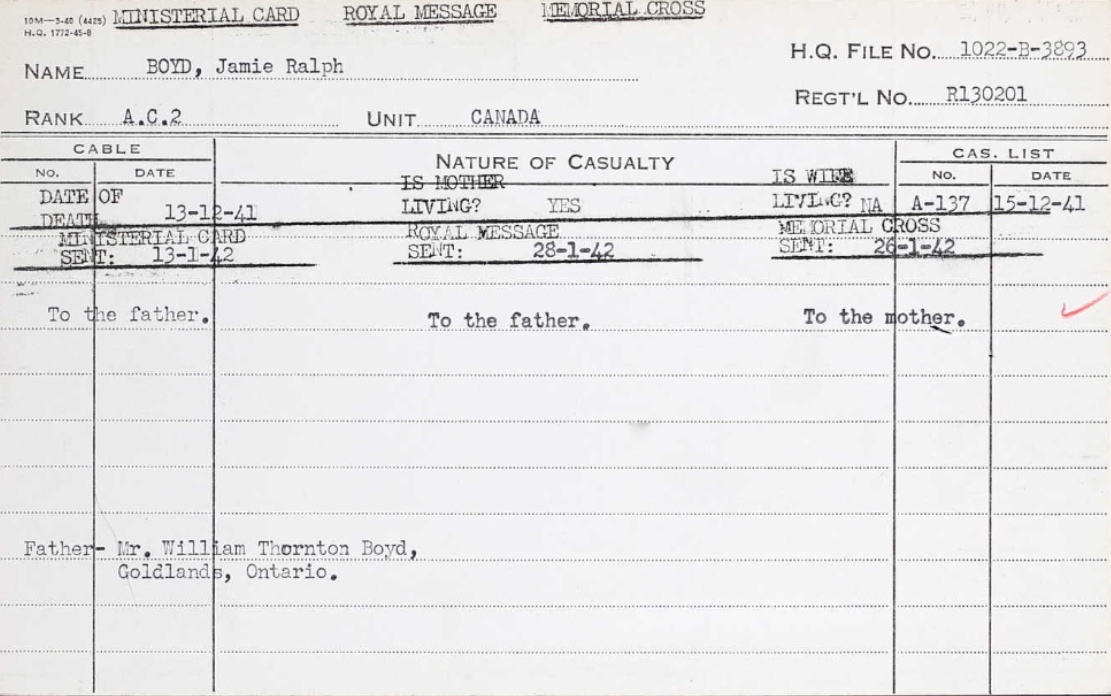 10M—3-40 (4425) MINISTERIAL CARD ROYAL MESSAGE MEMORIAL CROSS
H.Q. 1772-45-8
H.Q. FILE NO. 1022-B-3893
NAME BOYD, Jamie Ralph
REGT'L NO. R130201
RANK A.C.2 UNIT CANADA
CABLE NATURE OF CASUALTY CAS. LIST
NO. DATE NO. DATE
IS MOTHER IS WIFE
DATE OF
LIVING? YES LIVING? NA A-137 15-12-41
DEATH 13-12-41
MINISTERIAL CARD ROYAL MESSAGE MEMORIAL CROSS
SENT: 13-1-42 SENT: 28-1-42 SENT: 26-1-42
To the father. To the father. To the mother.
Father- Mr. William Thornton Boyd,
Goldlands, Ontario.